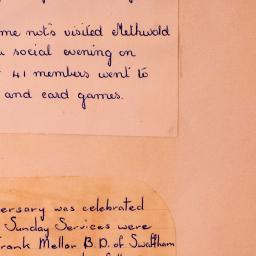 me not's visited Methwold
social evening on
41 members went to
and card games.
ersary was celebrated
Sunday Services were
rank Mellor B.D. of Swaffham